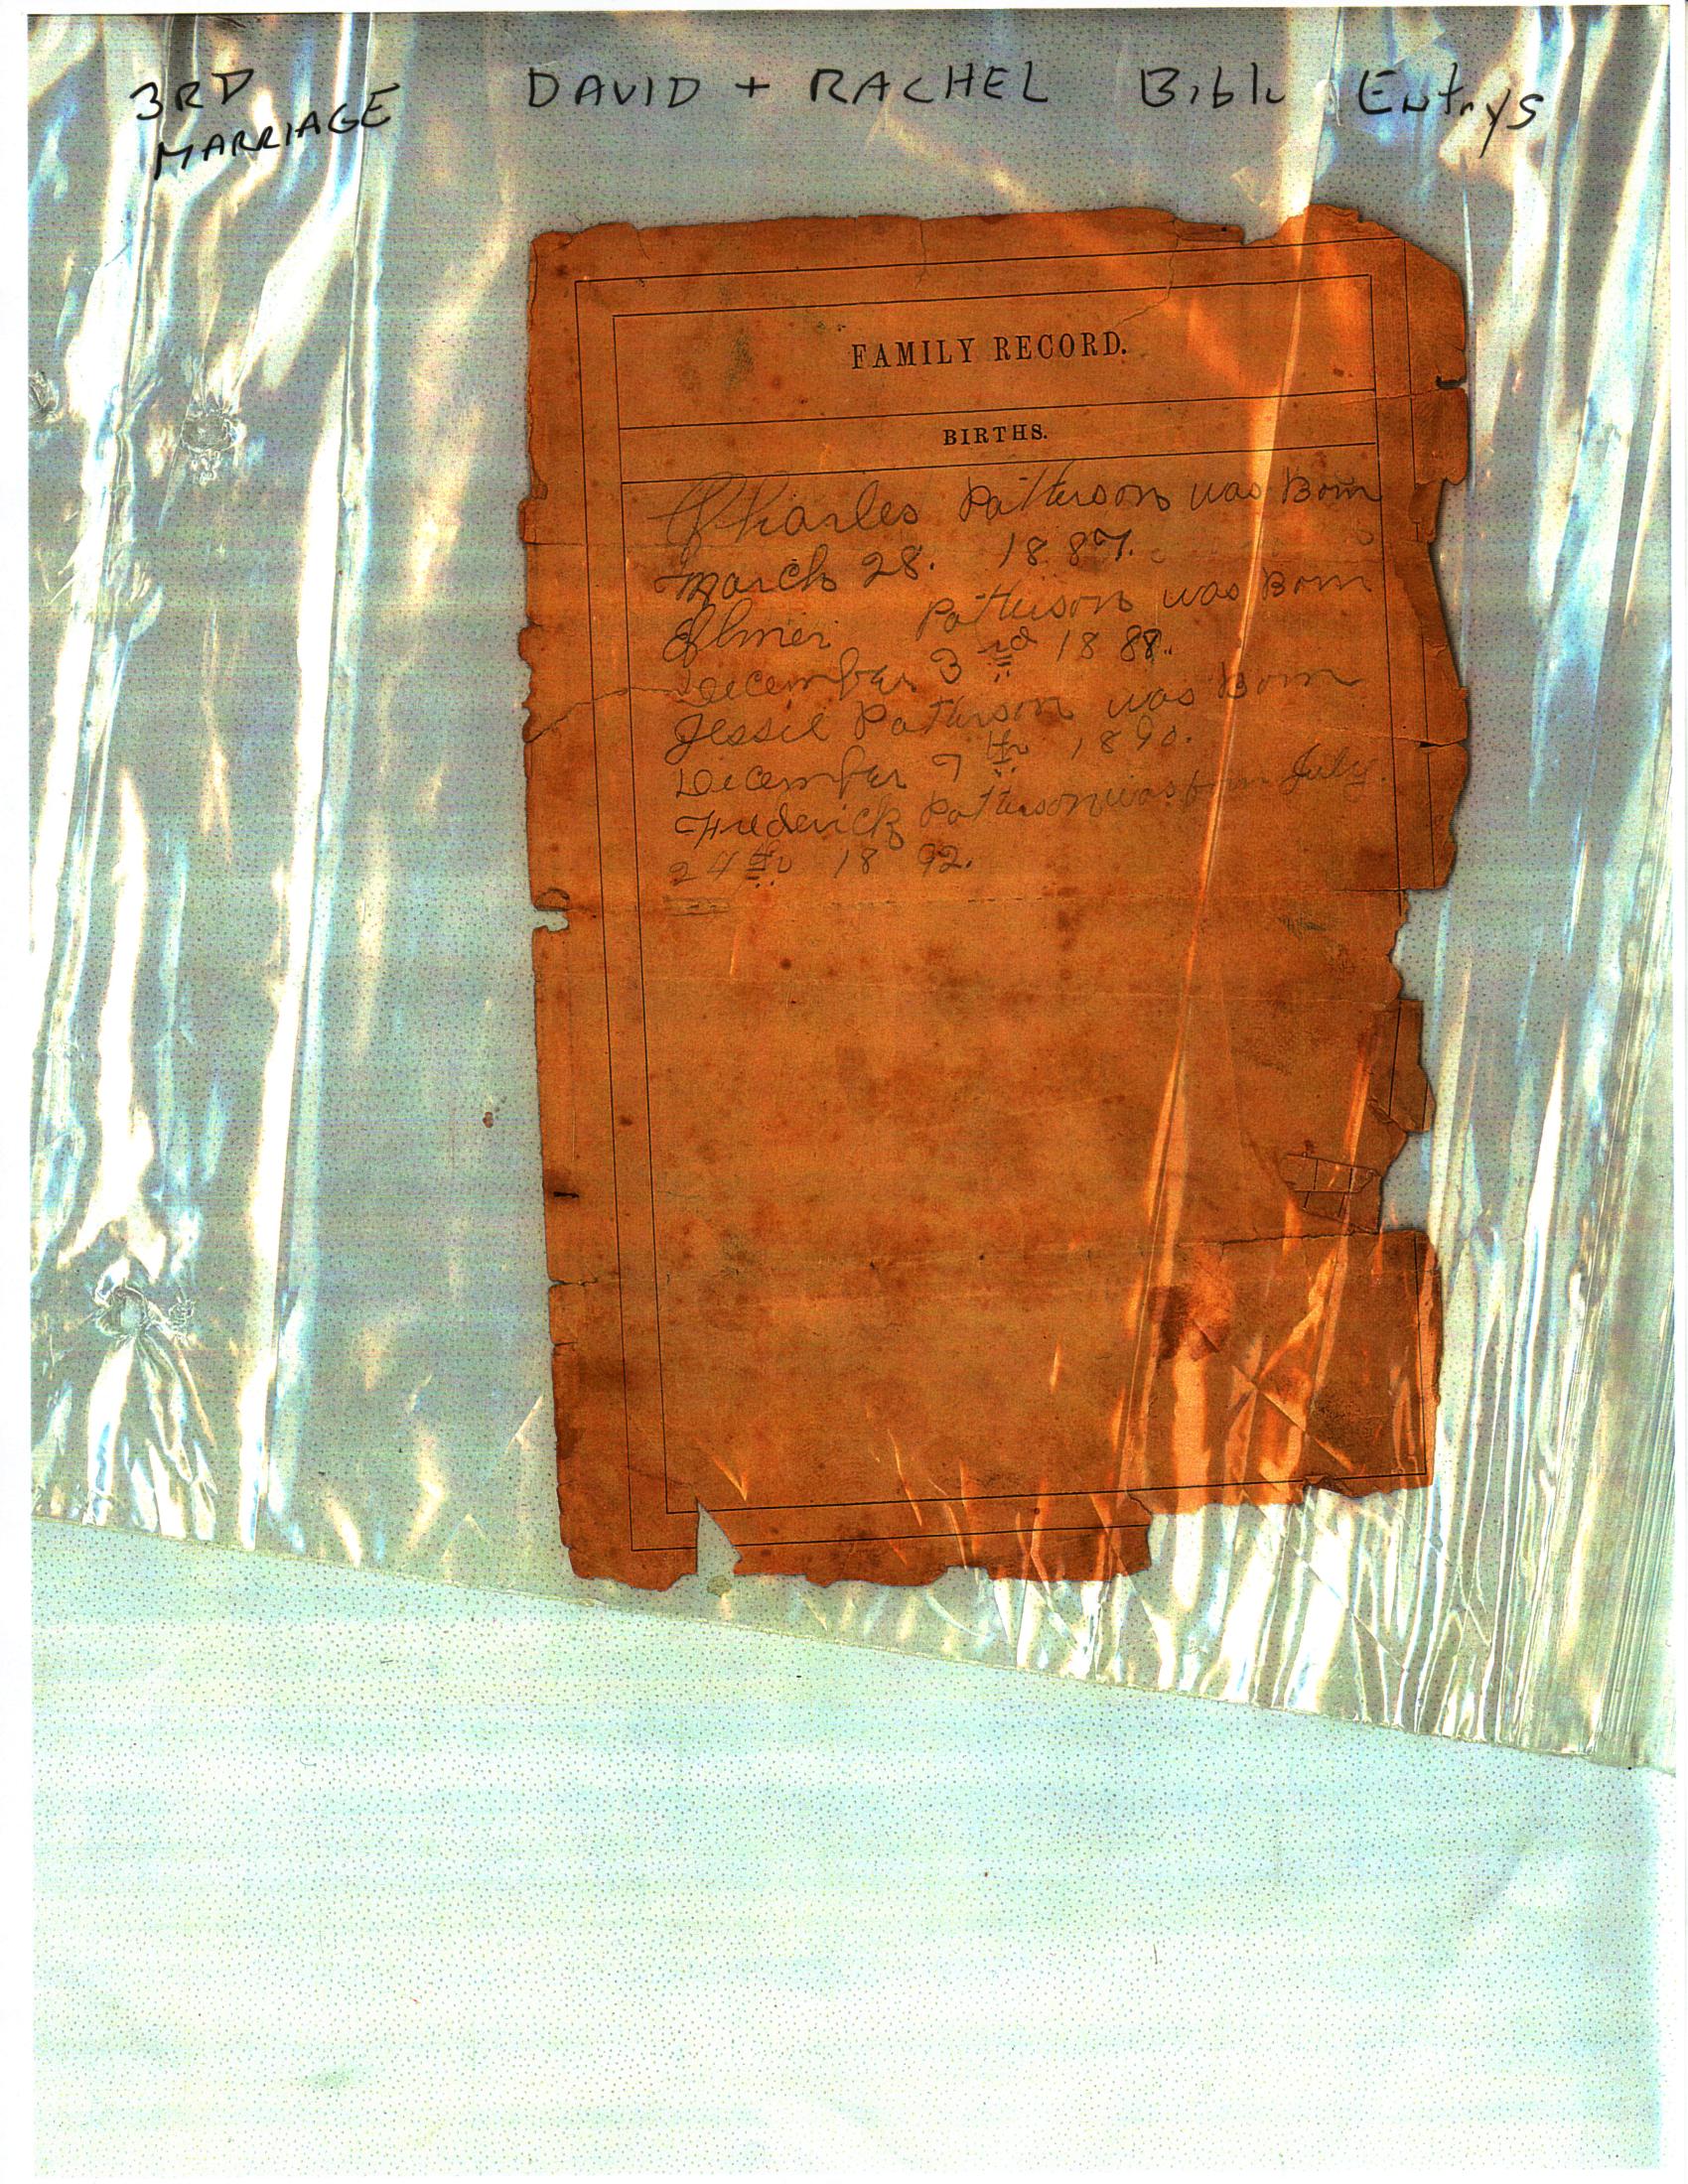 3RD MARRIAGE DAVID + RACHEL Bible Entrys
FAMILY RECORD.
BIRTHS.
Charles Patterson was Born
March 28. 1887.
Elmer Patterson was Born
December 3rd 1888.
Jessie Patterson was Born
December 7th 1890.
Frederick Patterson was born July.
24th 1892.